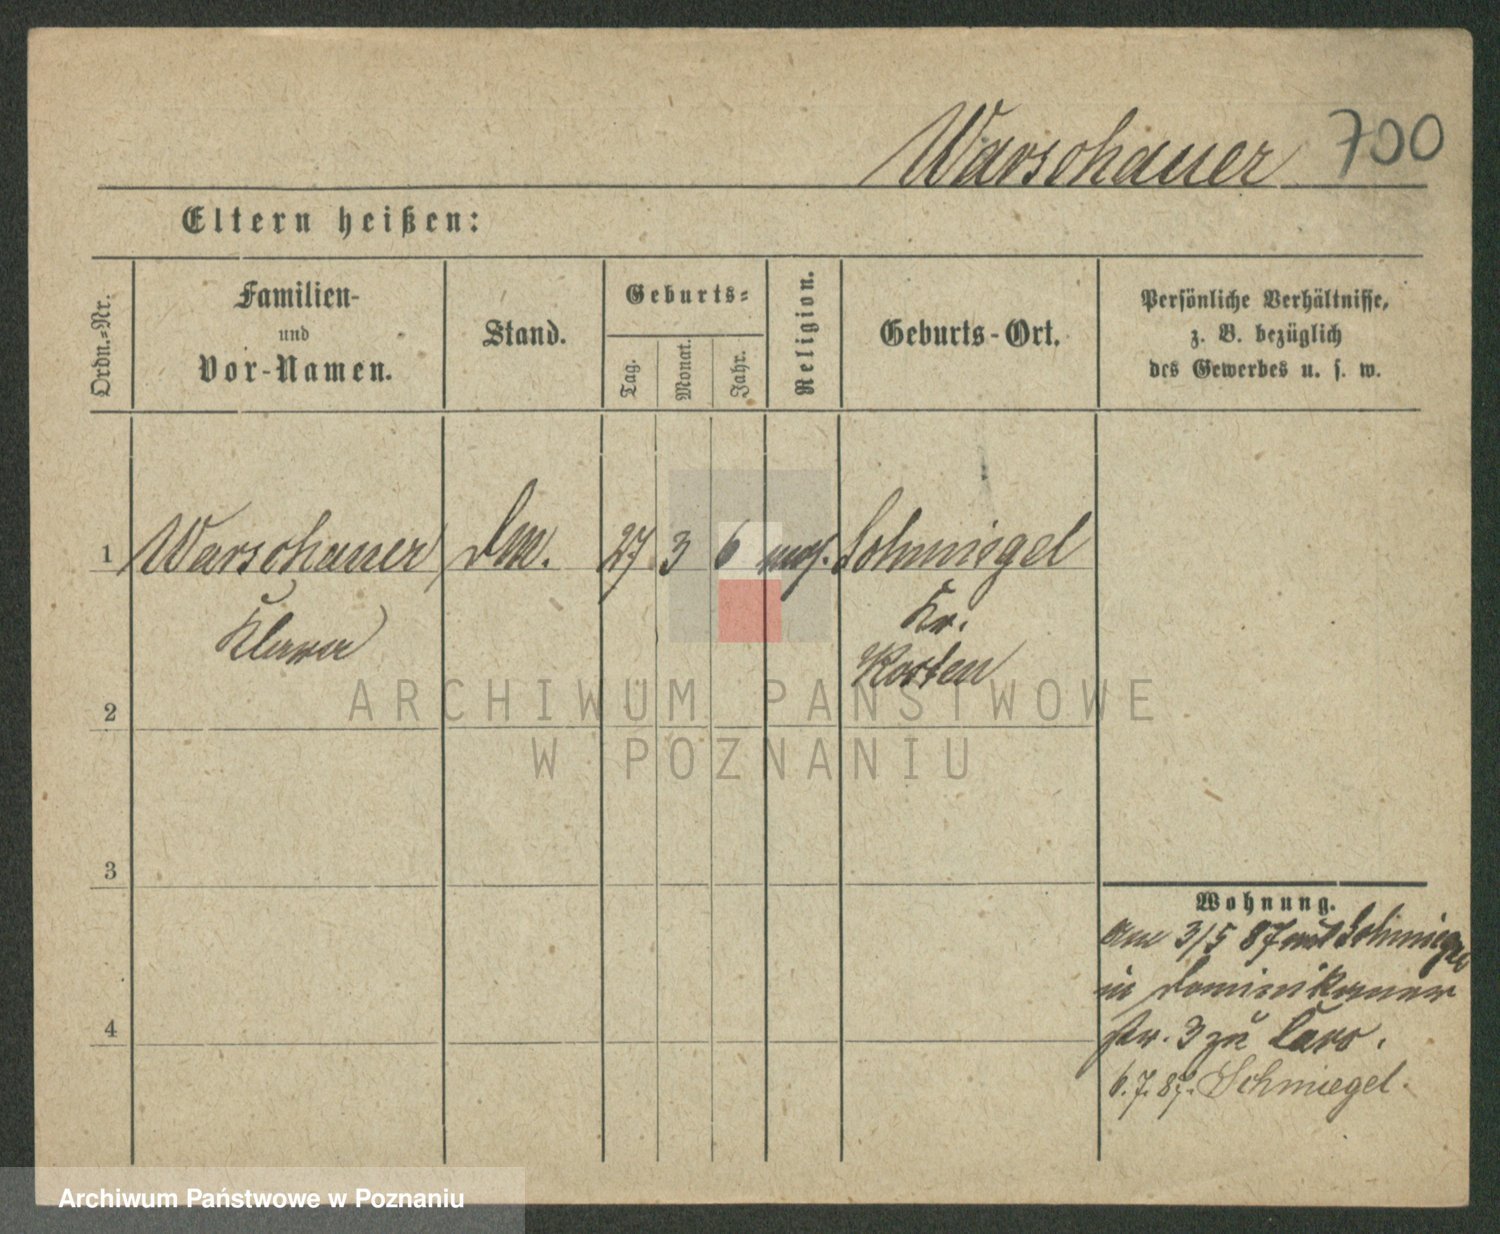 Warschauer 700
Eltern heißen:
Ordn.-Nr.
Familien-
und
Vor-Namen.
Stand.
Geburts-
Tag.
Monat.
Jahr.
Religion.
Geburts-Ort.
Persönliche Verhältnisse,
z. B. bezüglich
des Gewerbes u. s. w.
1 Warschauer 27 3 6 mos. Schmiegel
Klara
Kr.
Kosten
2
3
4
Wohnung.
3/5 87 Schmiegel
in Dominikaner
str. 3 zu Caro.
6.7.87. Schmiegel.
ARCHIWUM PAŃSTWOWE
W POZNANIU
Archiwum Państwowe w Poznaniu